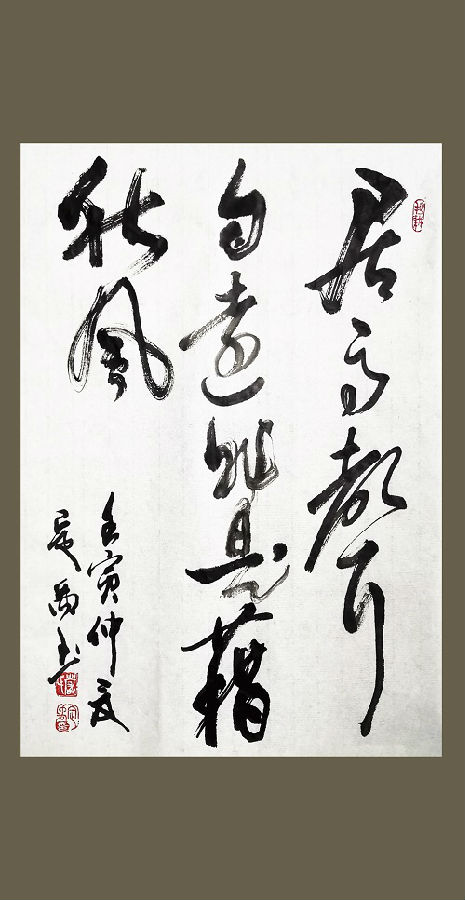 居高聲
自遠非是藉
秋風
壬寅仲夏
禹書